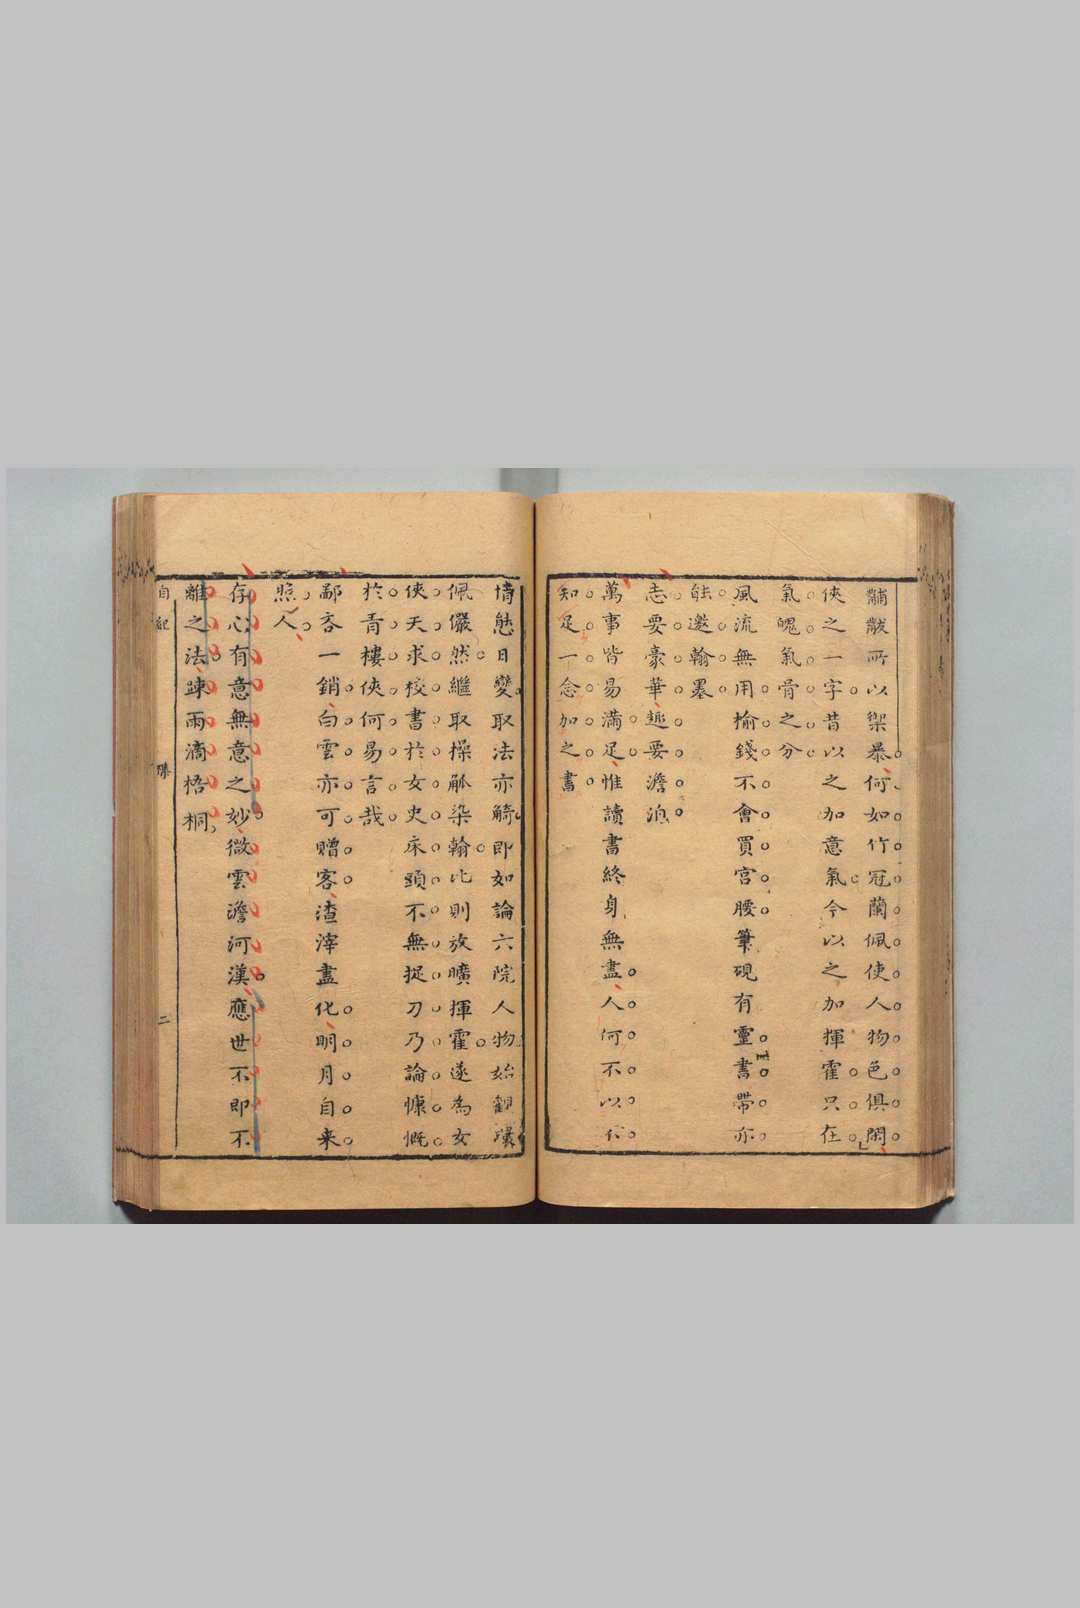 黼黻所以禦暴何如竹冠蘭佩使人物色俱閑
俠之一字昔以之加意氣今以之加揮霍只在
氣魄氣骨之分
風流無用榆錢不會買宮腰筆硯有靈書帶亦
能邀翰墨
志要豪華趣要澹泊
萬事皆易滿足惟讀書終身無盡人何不以不
知足一念加之書
情態日變取法亦觭即如論六院人物始觀瓖
佩儼然繼取操觚染翰比則放曠揮霍遂為女
俠夫求校書於女史床頭不無捉刀乃論慷慨
於青樓俠何易言哉
鄙吝一銷白雲亦可贈客渣滓盡化明月自来
照人
存心有意無意之妙微雲澹河漢應世不即不
離之法踈雨滴梧桐
自紀
二